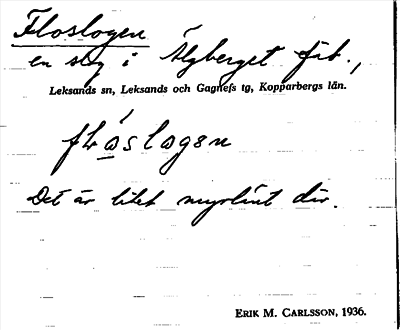 Floslogen
en slog i Älgberget fäb.,
Leksands sn, Leksands och Gagnefs tg, Kopparbergs län.
flåslogen
Det är litet myrlänt där.
ERIK M. CARLSSON, 1936.